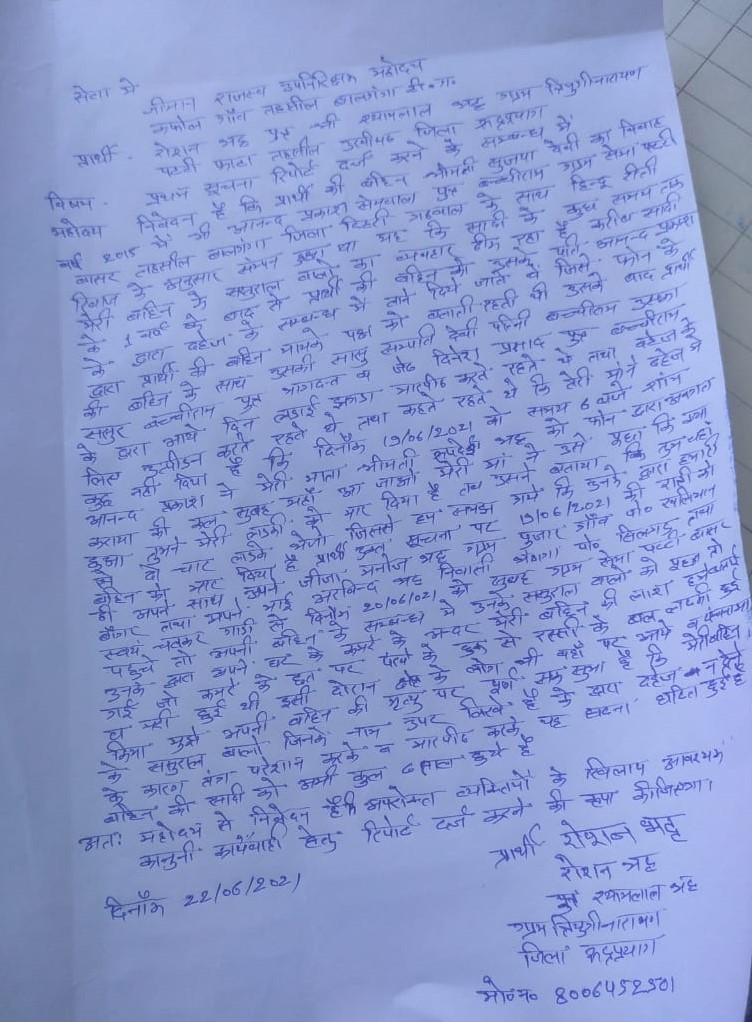 सेवा में
श्रीमान राजस्व उपनिरीक्षक महोदय
गाँव तहसील बालगंगा टि. ग.
प्रार्थी - रोशन भट्ट पुत्र श्री श्यामलाल भट्ट ग्राम त्रियुगीनारायण
पट्टी फाटा तहसील उखीमठ जिला रूद्रप्रयाग
विषय - प्रथम सूचना रिपोर्ट दर्ज करने के सम्बन्ध में
महोदय निवेदन है कि प्रार्थी की बहिन श्रीमती देवी का विवाह
वर्ष 2015 में श्री आनन्द प्रकाश सेमवाल पुत्र बच्चीराम ग्राम सेमा पट्टी
बासर तहसील बालगंगा जिला टिहरी गढवाल के साथ हिन्दू रीती
रिवाज के अनुसार सम्पन हुआ था यह कि सादी के कुछ समय तक
मेरी बहिन के ससुराल वालो का व्यवहार ठीक रहा है करीब सादी
के 1 वर्ष के बाद से प्रार्थी की बहिन को उसके पति आनन्द प्रकाश
के द्वारा दहेज के सम्बन्ध में ताने दिये जाते थे जिसे फोन के
द्वारा प्रार्थी की बहिन मायके पक्ष को बताती रहती थी उसके बाद प्रार्थी
की बहिन के साथ उसकी सासु सम्पति देवी पत्नि बच्चीराम उसका
ससुर बच्चीराम पुत्र व जेठ दिनेश प्रसाद पुत्र बच्चीराम
के द्वारा आये दिन लडाई झगडा मारपीट करते रहते थे तथा दहेज के
लिए उत्पीडन करते रहते थे तथा कहते रहते थे कि तेरी माँ ने दहेज मे
कुछ नहीं दिया है कि दिनाँक 19/06/2021 को समय 6 बजे शाम
आनन्द प्रकाश ने मेरी माता श्रीमती भट्ट को फोन द्वारा अवगत
कराया की कल सुबह यहाँ आ जाओ मेरी माँ ने उसे पूछा कि क्या
हुआ तुमने मेरी लडकी को मार दिया है तब उसने बताया कि तुम वहाँ
से दो चार लडके भेजो जिससे हम समझ गये कि उनके द्वारा हमारी
बहिन को मार दिया है प्रार्थी इस सूचना पर 19/06/2021 की रात्री को
ही अपने साथ अपने जीजा मनोज भट्ट ग्राम पुजार गाँव पो०
बाँगर तथा अपने भाई अरविन्द भट्ट निवासी पो० सिलगढ तथा
स्वयं चलकर गाडी से दिनाँक 20/06/02 को सुबह ग्राम सेमा पट्टी बासर
पहुचे तो अपनी बहिन के सम्बन्ध में उनके ससुराल वालो को पूछा तो
उनके द्वारा अपने घर के कमरे के अन्दर मेरी बहिन की लाश हमे दिखाई
गई जो कमरे के छत पर पंखे के हुक से रस्सी के बल लटकी हुई
व मरी हुई थी इसी दौरान के लोग भी वहाँ पर आये व पंचनामा
किया मुझे अपनी बहिन की मृत्यु पर पूर्ण सक सुभा है कि मेरी बहिन
के ससुराल वालो जिनके नाम उपर लिखे है के द्वारा दहेज न देने
के कारण तंग परेशान करके व मारपीट करके यह घटना घटित हुई है
बहिन की सादी को अभी कुल 6 साल हुये है
अतः महोदय से निवेदन है की उपरोक्त व्यक्तियों के खिलाप आवश्यक
कानुनी कार्यवाही हेतु रिपोर्ट दर्ज करने की कृपा कीजिएगा।
प्रार्थी रोशन भट्ट
रोशन भट्ट
पुत्र श्यामलाल भट्ट
ग्राम त्रियुगीनारायण
जिला रूद्रप्रयाग
मो०न० 8006452501
दिनाँक 22/06/2021